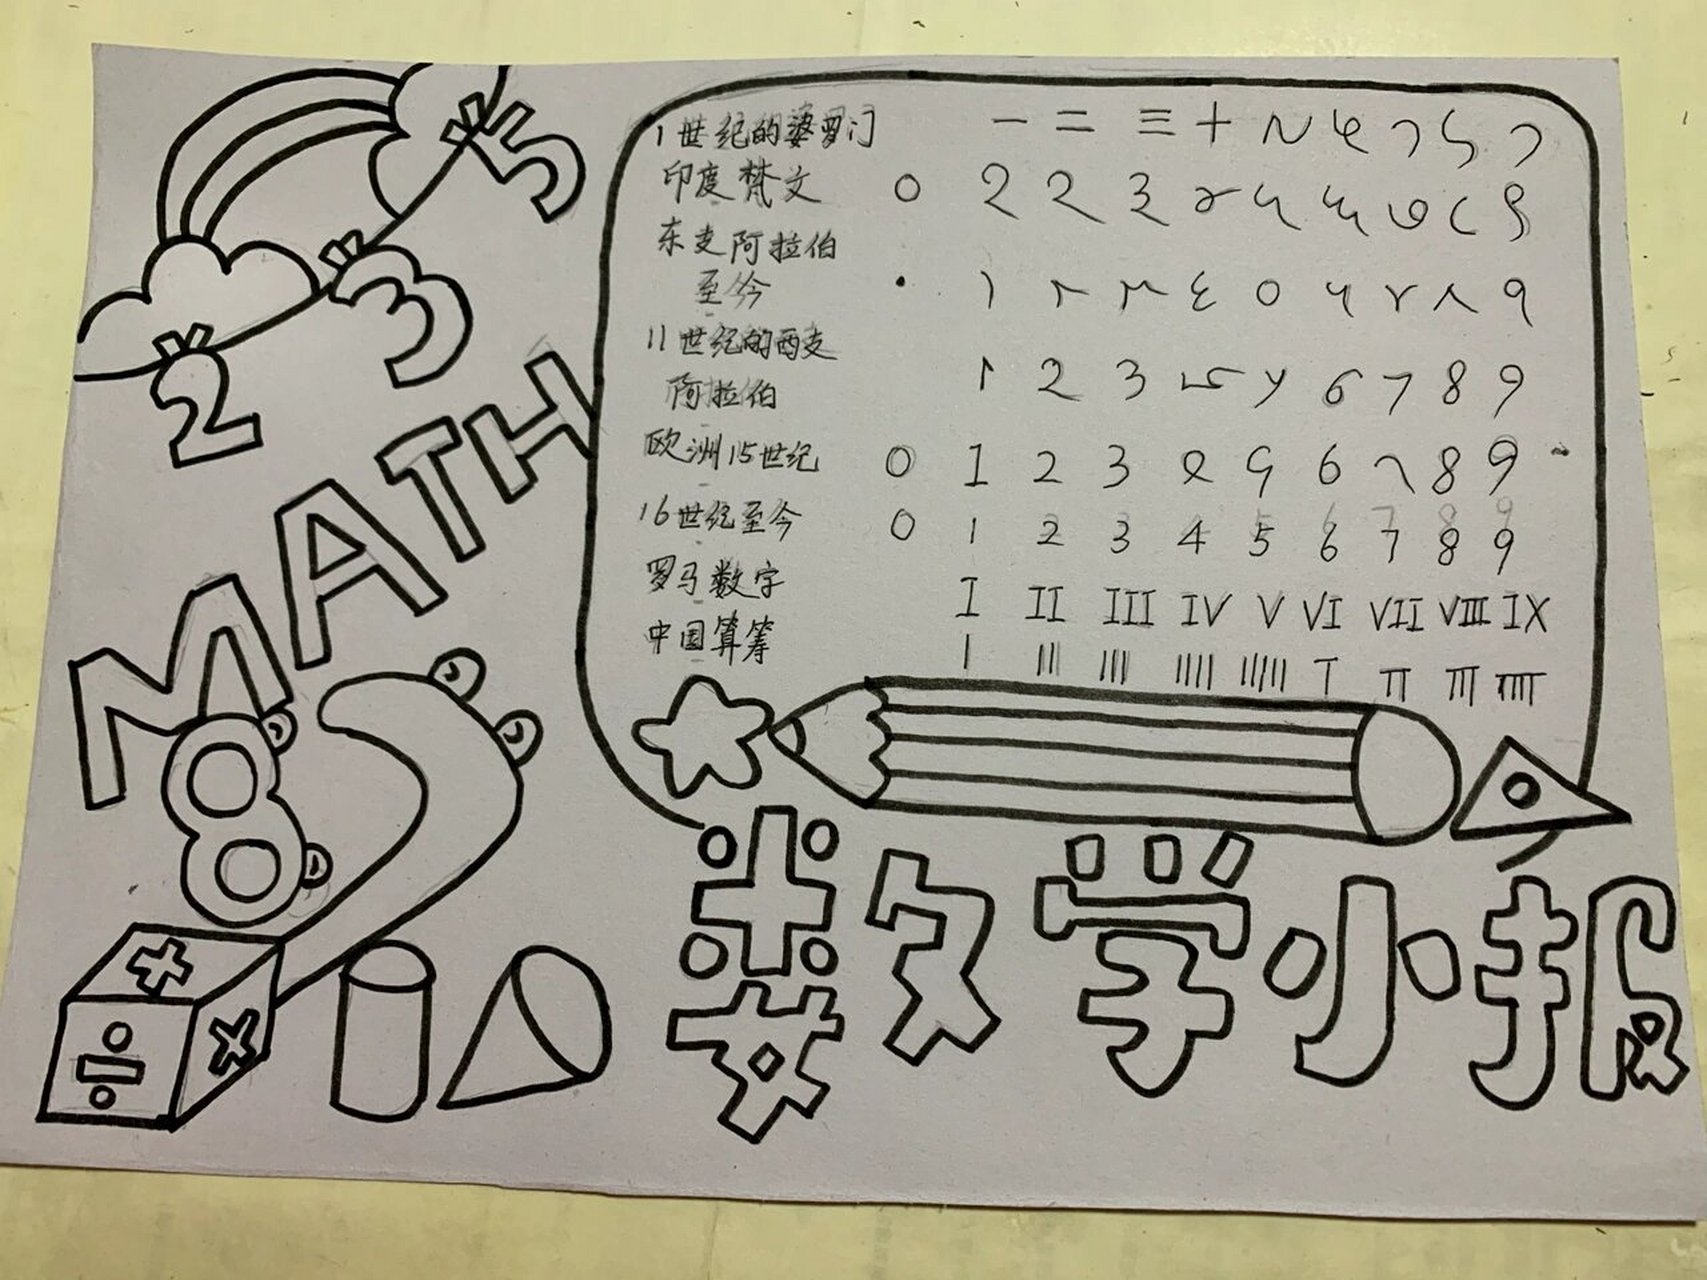 5
3
2
MATH
8
1世纪的婆罗门 一 二 三 十
印度梵文 0
东支阿拉伯
至今 ·
11世纪的西支
阿拉伯 1 2 3 6 7 8 9
欧洲15世纪 0 1 2 3 6 8 9
16世纪至今 0 1 2 3 4 5 6 7 8 9
罗马数字 I II III IV V VI VII VIII IX
中国算筹 | ||| |||| ||||| |||||| T TT TTT
+
÷ ×
数学小报